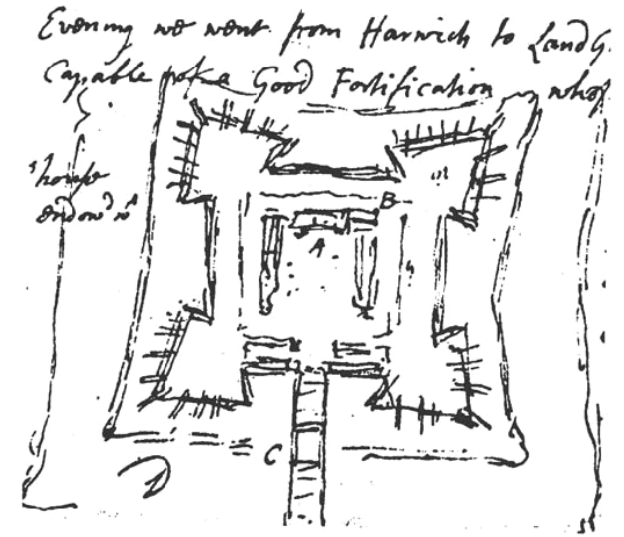 Evening we went from Harwich to Land G
Capable of a Good Fortification whos
B
A
house
endow'd wth
C
D